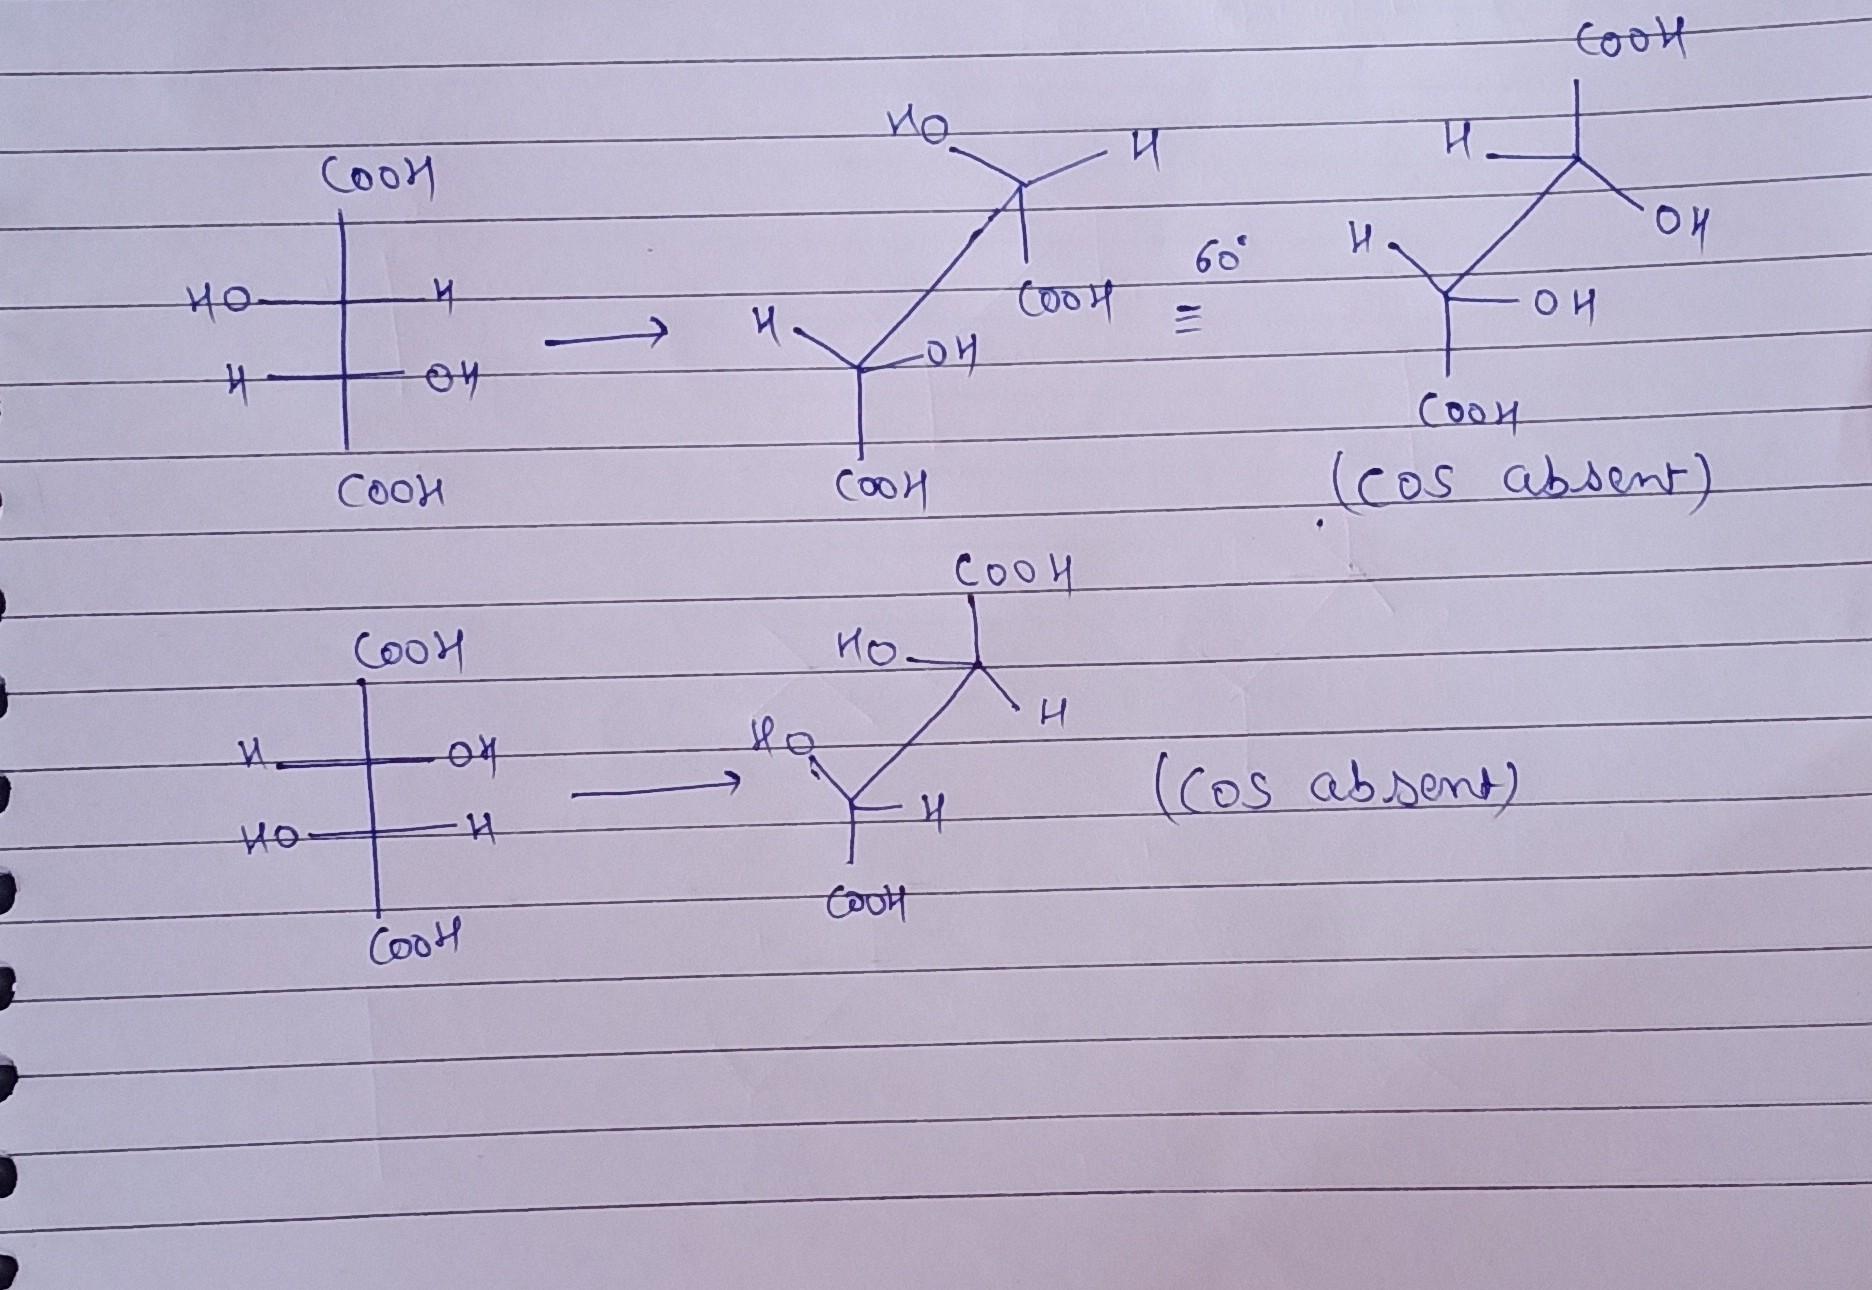 COOH
HO H
H OH
COOH
HO H
COOH
H OH
COOH
60°
≡
COOH
H
OH
H
OH
COOH
(COS absent)
COOH
H OH
HO H
COOH
COOH
HO
H
HO
H
COOH
(COS absent)